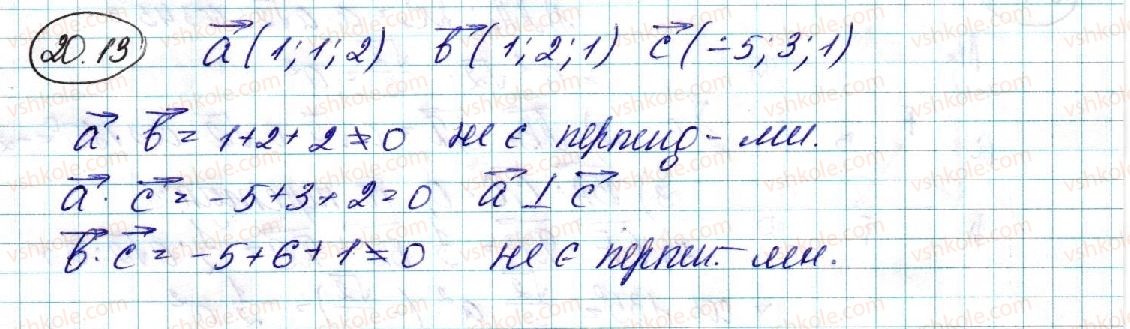 20.13 a⃗ (1; 1; 2) b⃗ (1; 2; 1) c⃗ (-5; 3; 1)
a⃗ · b⃗ = 1+2+2 ≠ 0 не є перпенд-ми.
a⃗ · c⃗ = -5+3+2=0 a⃗ ⊥ c⃗
b⃗ · c⃗ = -5+6+1 ≠ 0 не є перпен.-ми.